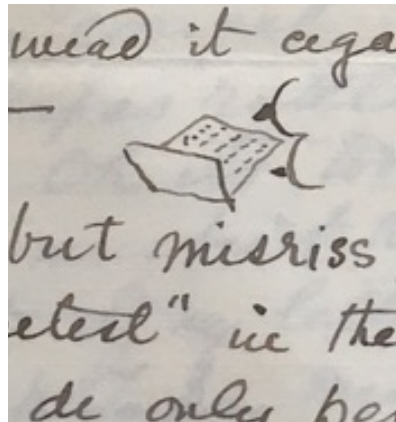 wead it aga
but misriss
etest" in the
de only